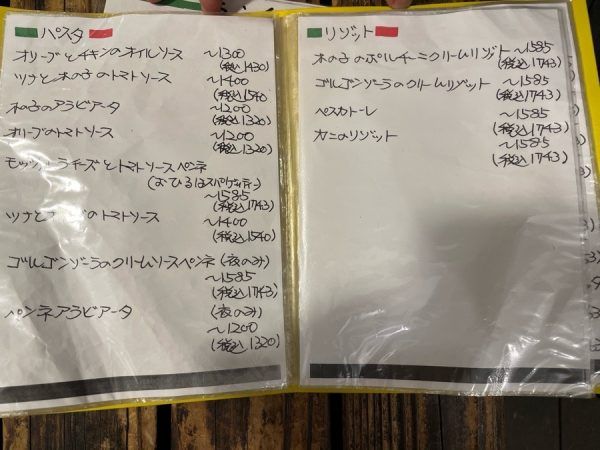 パスタ
オリーブとチキンのオイルソース ～1300
(税込1430)
ツナと木の子のトマトソース ～1400
(税込1540)
木の子のアラビアータ ～1200
(税込1320)
オリーブのトマトソース ～1200
(税込1320)
モッツァレラチーズとトマトソースペンネ
(おひるはスパゲッティー)
～1585
(税込1743)
ツナと のトマトソース ～1400
(税込1540)
ゴルゴンゾーラのクリームソースペンネ (夜のみ)
～1585
(税込1743)
ペンネアラビアータ (夜のみ)
～1200
(税込1320)
リゾット
木の子のポルチーニクリームリゾット ～1585
(税込1743)
ゴルゴンゾーラのクリームリゾット ～1585
(税込1743)
ペスカトーレ ～1585
(税込1743)
カニのリゾット ～1585
(税込1743)